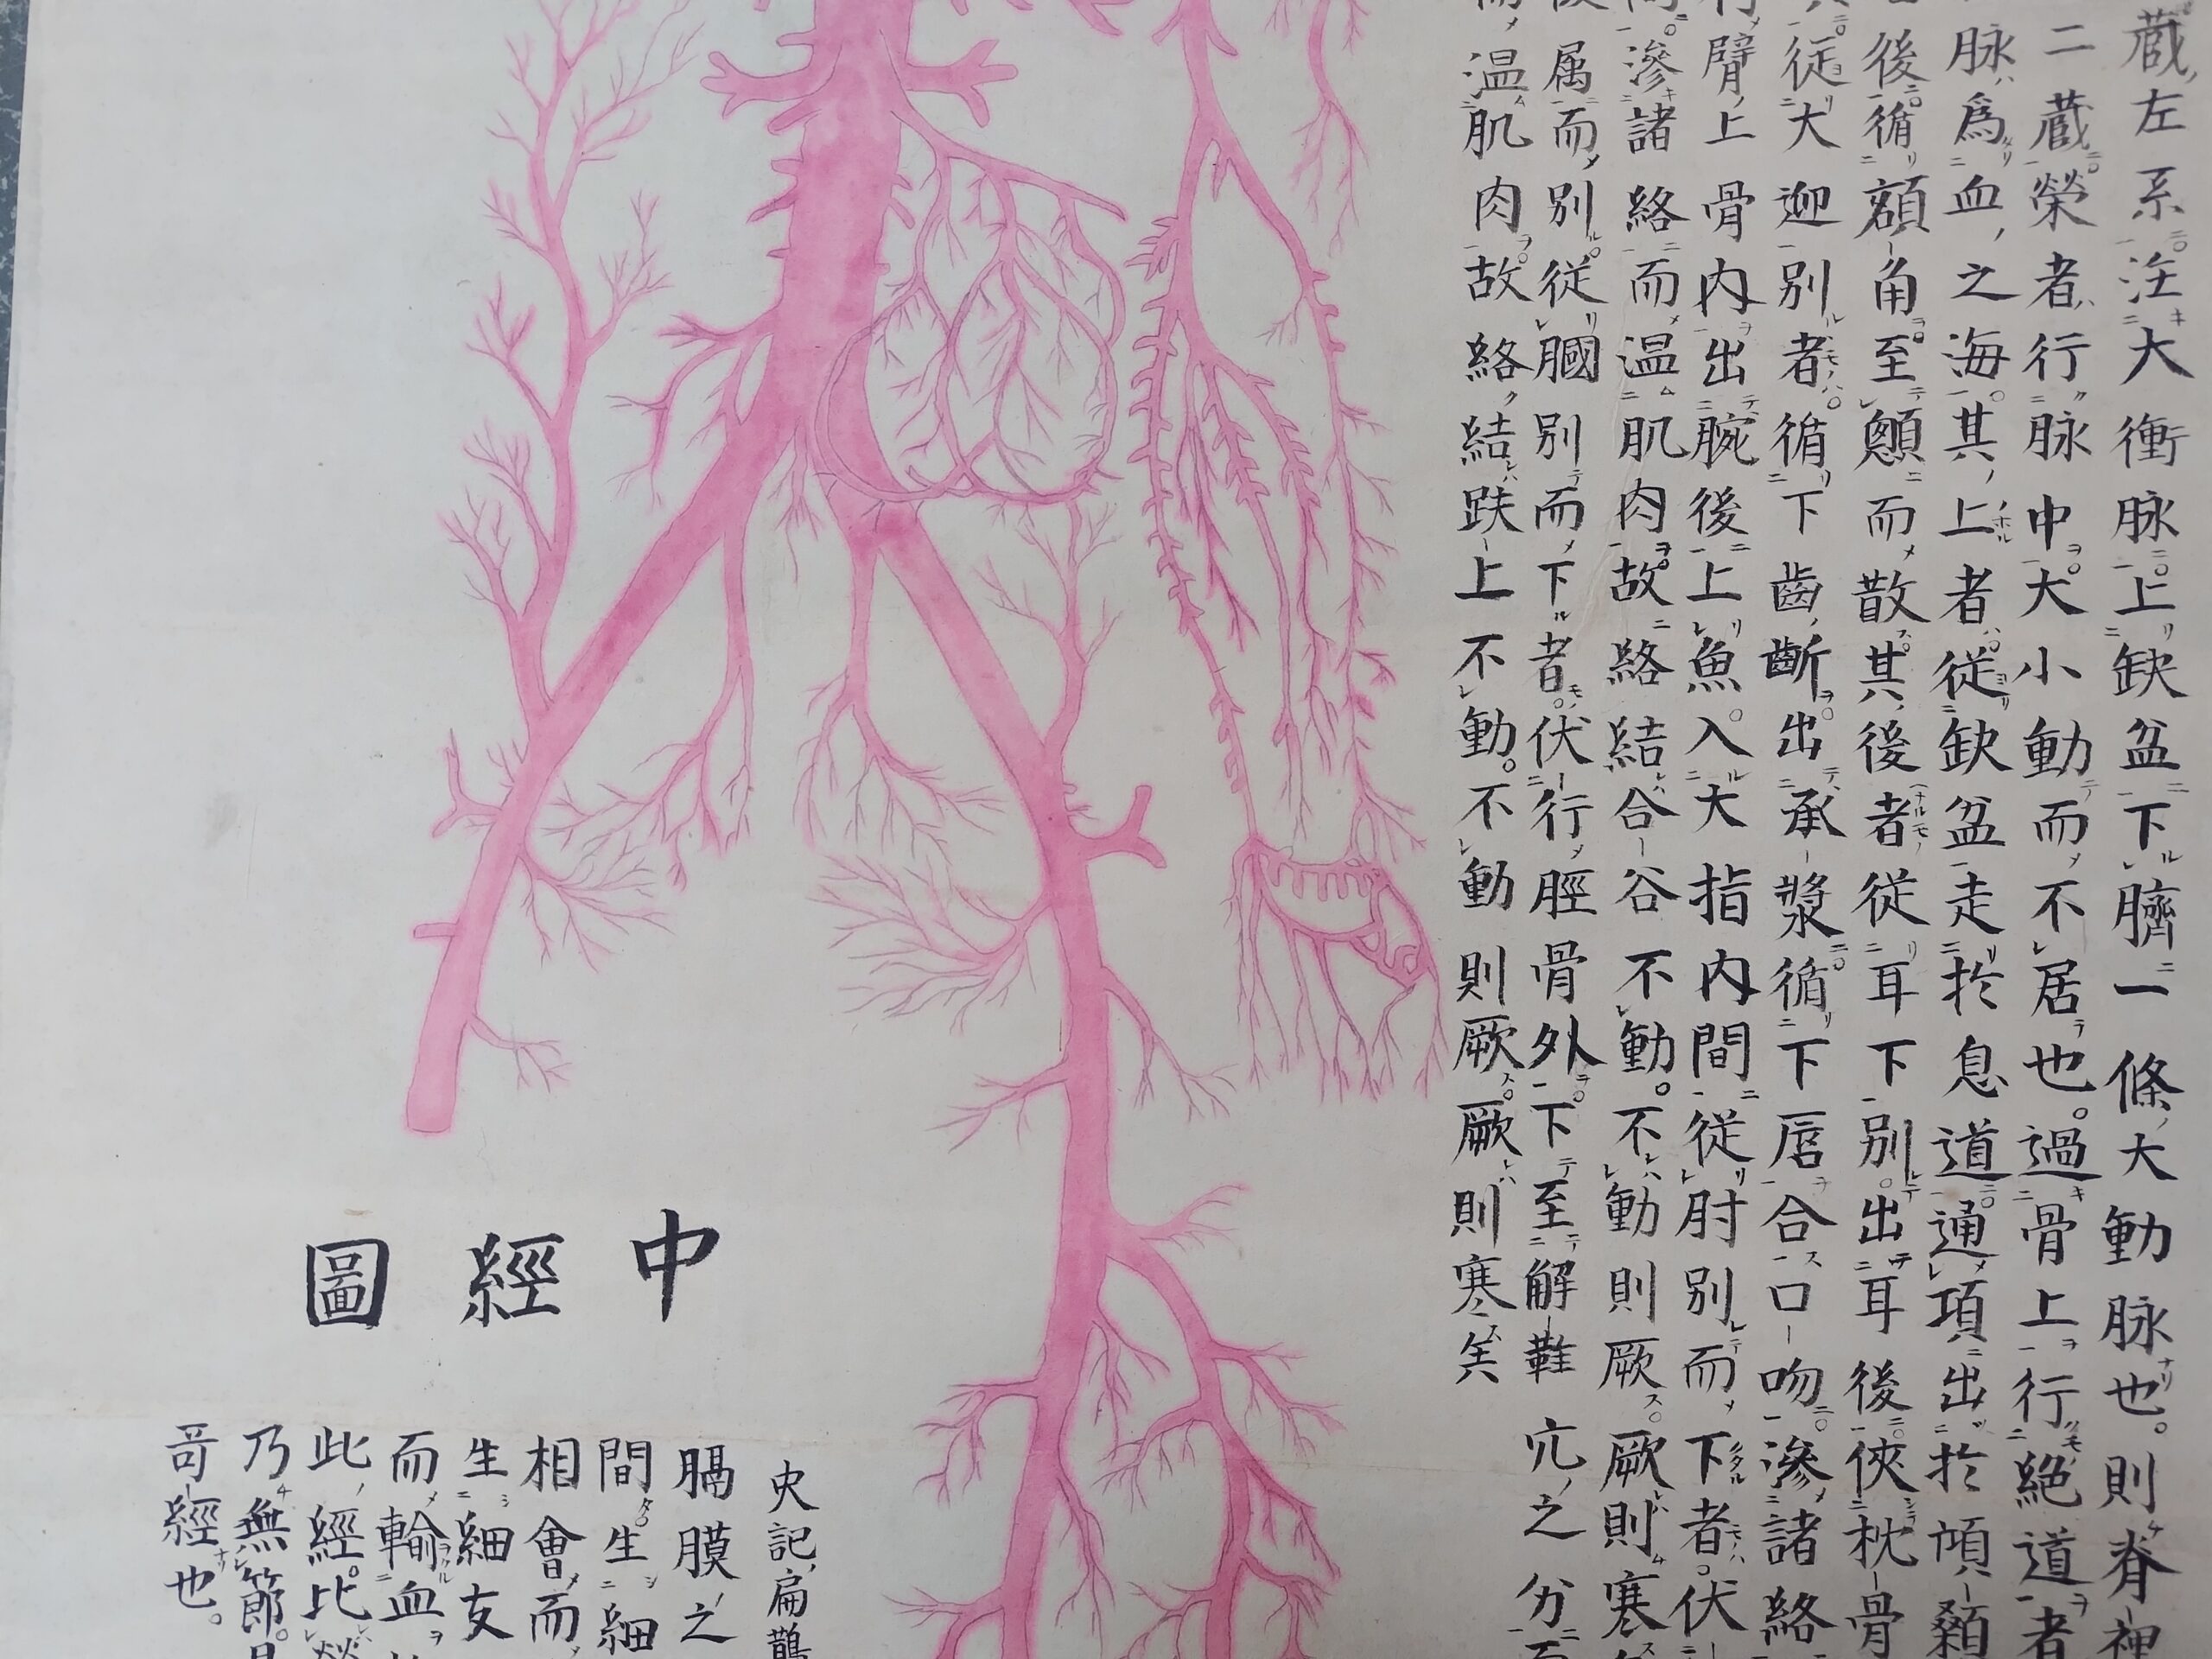 蔵左系注大衝脉上缺盆下臍一條大動脉也。則脊裡
二蔵榮者行脉中大小動而不居也。過骨上行絶道者
脉爲血之海其上者從缺盆走於息道通項出於頏顙
後循額角至顖而散其後者從耳下別出耳後俠枕骨
從大迎別者循下齒齗出承漿循下唇合口吻滲諸絡
臂上骨内出腕後上魚入大指内間從肘別而下者伏
滲諸絡而温肌肉故絡結合谷不動。不動則厥厥則寒
属而別從膕別而下者伏行脛骨外下至解鞋 亢之分
温肌肉故絡結跌上不動。不動則厥厥則寒矣
中經圖
史記扁鵲
膈膜之
間生細
相會而
生細支
而輸血
此經比
乃無節。
苛經也。